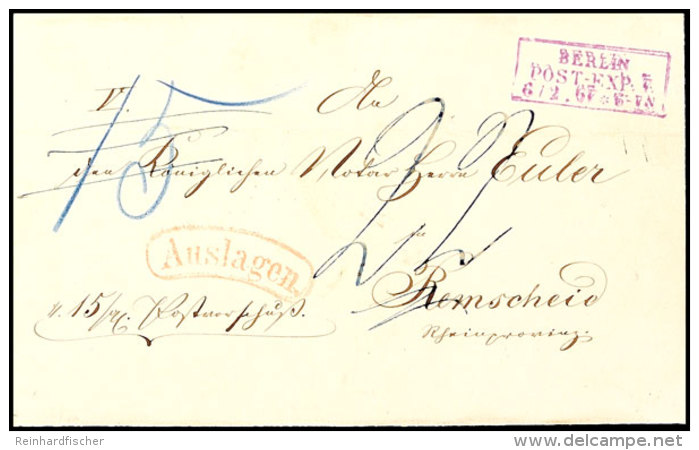 BERLIN
POST-EXP. 7.
6/2. 67 * 6-7 N
V.
An
15
den Königlichen Notar Herrn Euler
in
Auslagen.
Remscheid
v. 15 Sgr. Postvorschuß.
Rheinprovinz.
Reinhardfischer
delcampe.net